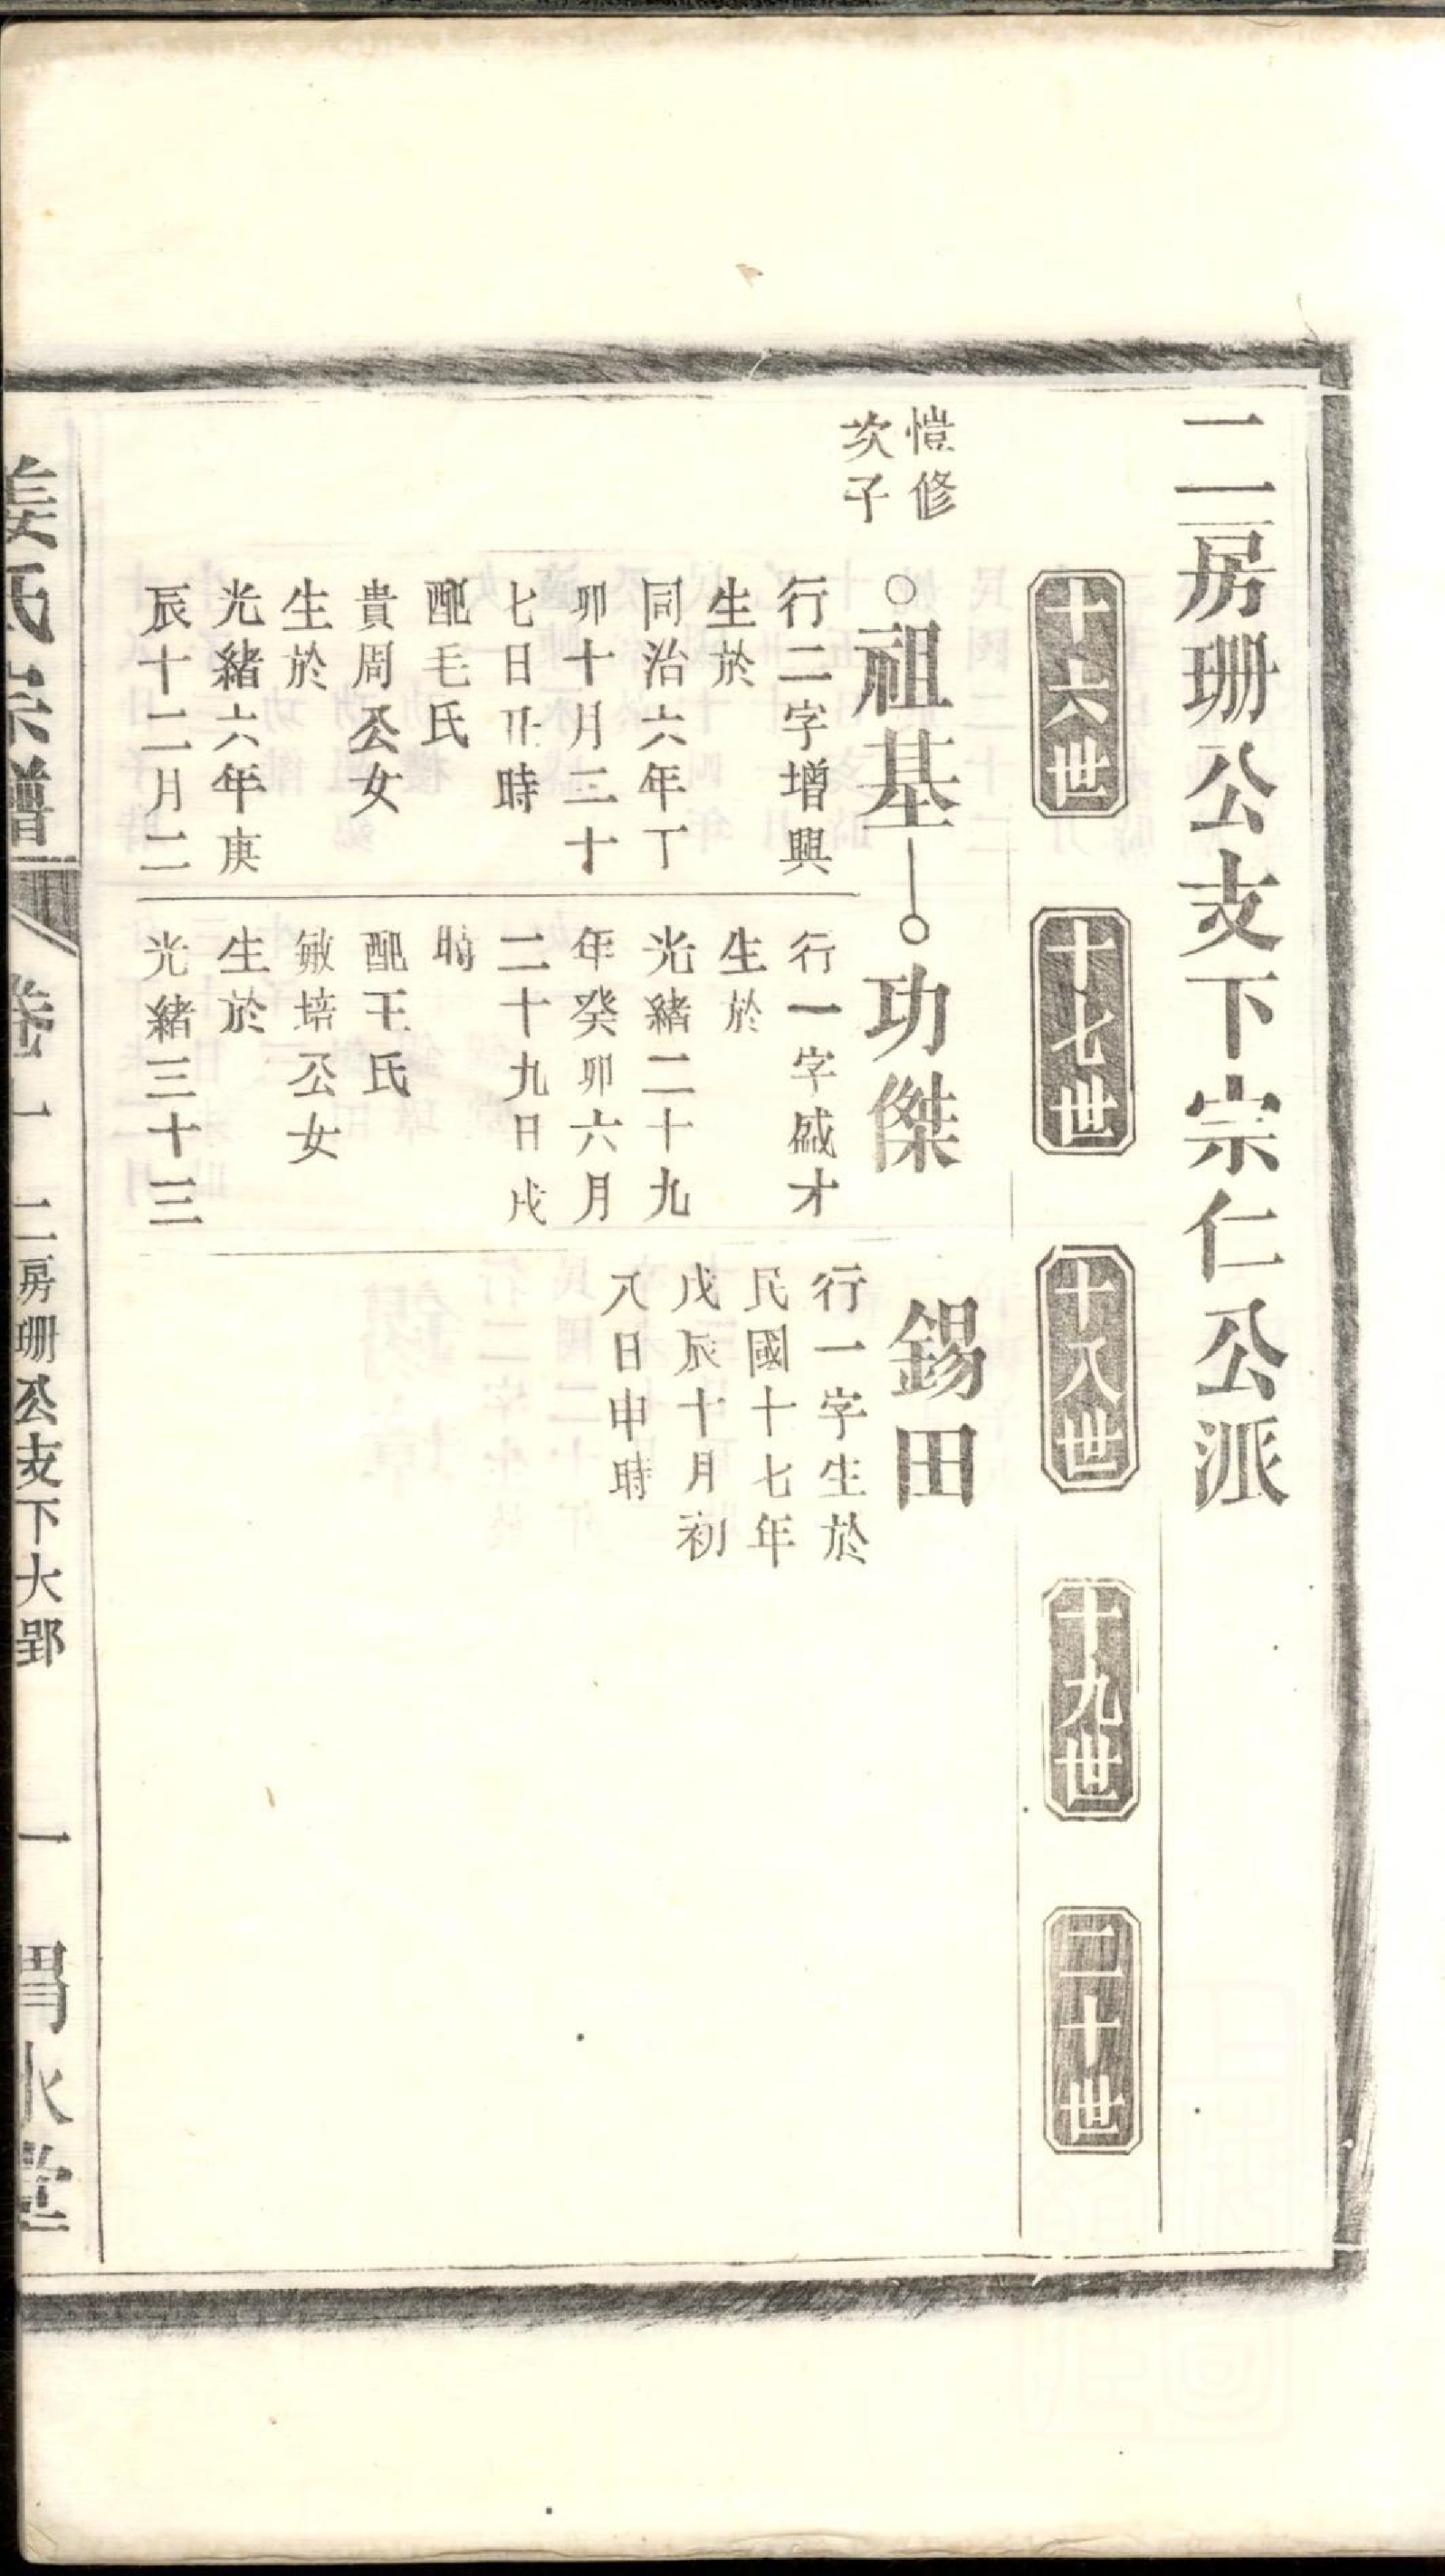 二房珊公支下宗仁公派
十六世
十七世
十八世
十九世
二十世
愷修
次子
祖基
行二字增興
生於
同治六年丁
卯十月二十
七日丑時
配毛氏
貴周公女
生於
光緒六年庚
辰十二月二
功傑
行一字盛才
生於
光緒二十九
年癸卯六月
二十九日戌
時
配王氏
敏培公女
生於
光緒三十三
錫田
行一字生於
民國十七年
戊辰十月初
八日申時
姜氏宗譜
卷一
二房珊公支下大郢
一
渭水堂